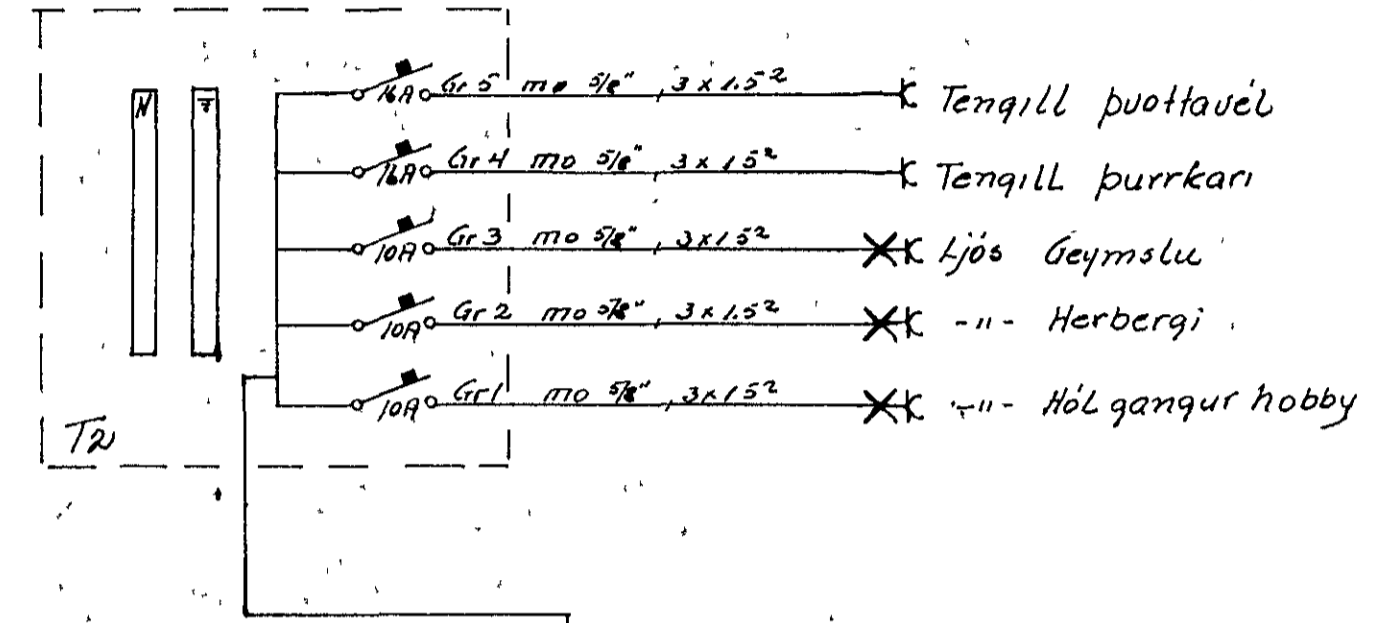 N
16A Gr 5 mo 5/8", 3 x 1.5² Tengill þvottavél
16A Gr 4 mo 5/8", 3 x 1 5² Tengill þurrkari
10A Gr 3 mo 5/8", 3 x 1 5² Ljós Geymslu
10A Gr 2 mo 5/8", 3 x 1.5² -"- Herbergi
10A Gr 1 mo 5/8", 3 x 1 5² -"- Hól gangur hobby
T2